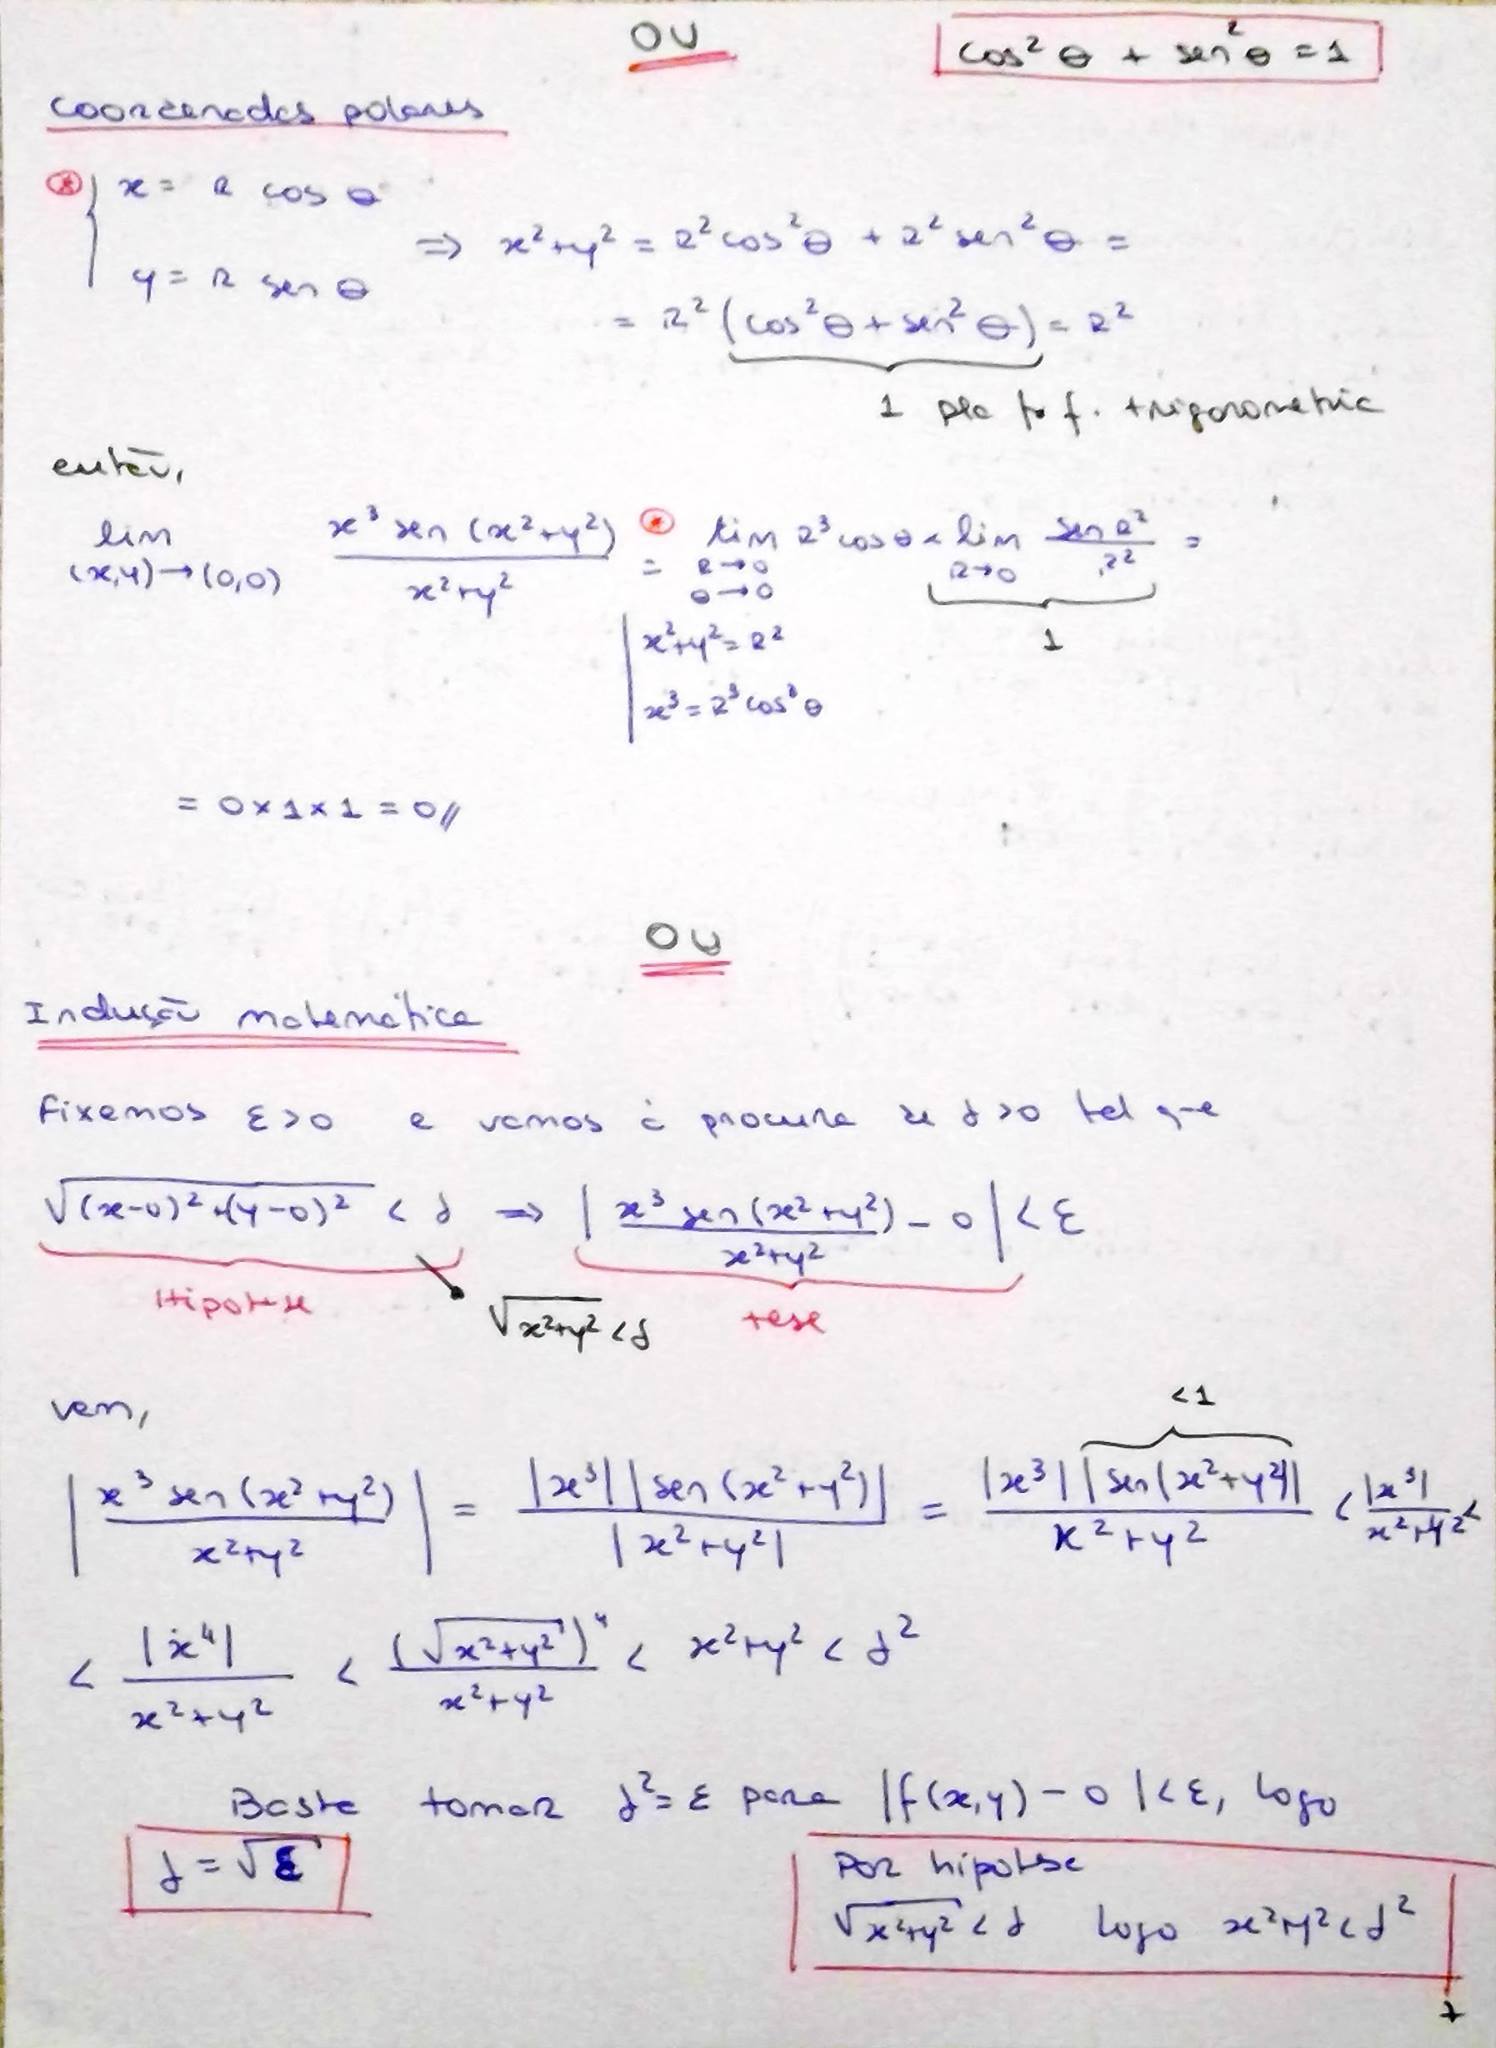 OU
cos² θ + sen² θ = 1
Coordenadas polares
⊛ { x = R cos θ
⇒ x²+y² = R² cos² θ + R² sen² θ =
y = R sen θ
= R² (cos² θ + sen² θ) = R²
1 pela f. trigonometria
então,
lim (x,y)→(0,0) x³ sen (x²+y²) / x²+y² ⊛ = lim R→0 θ→0 R³ cos θ × lim R→0 sen R² / R² =
1
x²+y² = R²
x³ = R³ cos³ θ
= 0 × 1 × 1 = 0 //
OU
Indução matemática
Fixemos ε > 0 e vamos à procura de δ > 0 tal que
√(x-0)² + (y-0)² < δ ⇒ | x³ sen (x²+y²) / x²+y² - 0 | < ε
Hipótese
√x²+y² < δ
tese
vem,
< 1
| x³ sen (x²+y²) / x²+y² | = |x³| |sen (x²+y²)| / |x²+y²| = |x³| |sen (x²+y²)| / x²+y² < |x³| / x²+y² <
< |x⁴| / x²+y² < (√x²+y²)⁴ / x²+y² < x²+y² < δ²
Basta tomar δ² = ε para |f(x,y) - 0| < ε, logo
δ = √ε
Por hipótese
√x²+y² < δ logo x²+y² < δ²